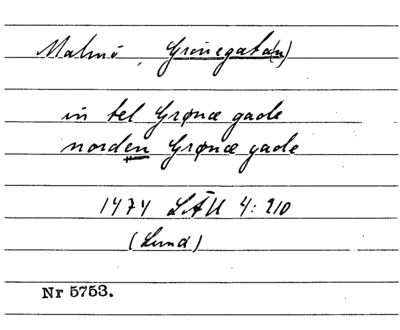 Malmö, Grönegata(n)
in tel Grønæ gade
norden Grønæ gade
1474 LÄU 4: 210
(Lund)
Nr 5753.